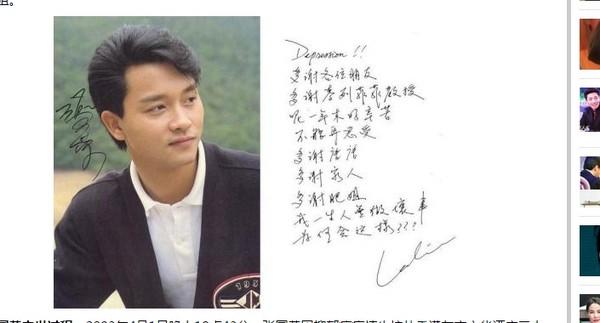 張國榮
195
Depression !!
多謝各位朋友
多謝麥列菲菲教授
呢一年來好辛苦
不能再忍受
多謝唐唐
多謝家人
多謝肥姐
我一生人無做壞事
為何會這樣???
Leslie